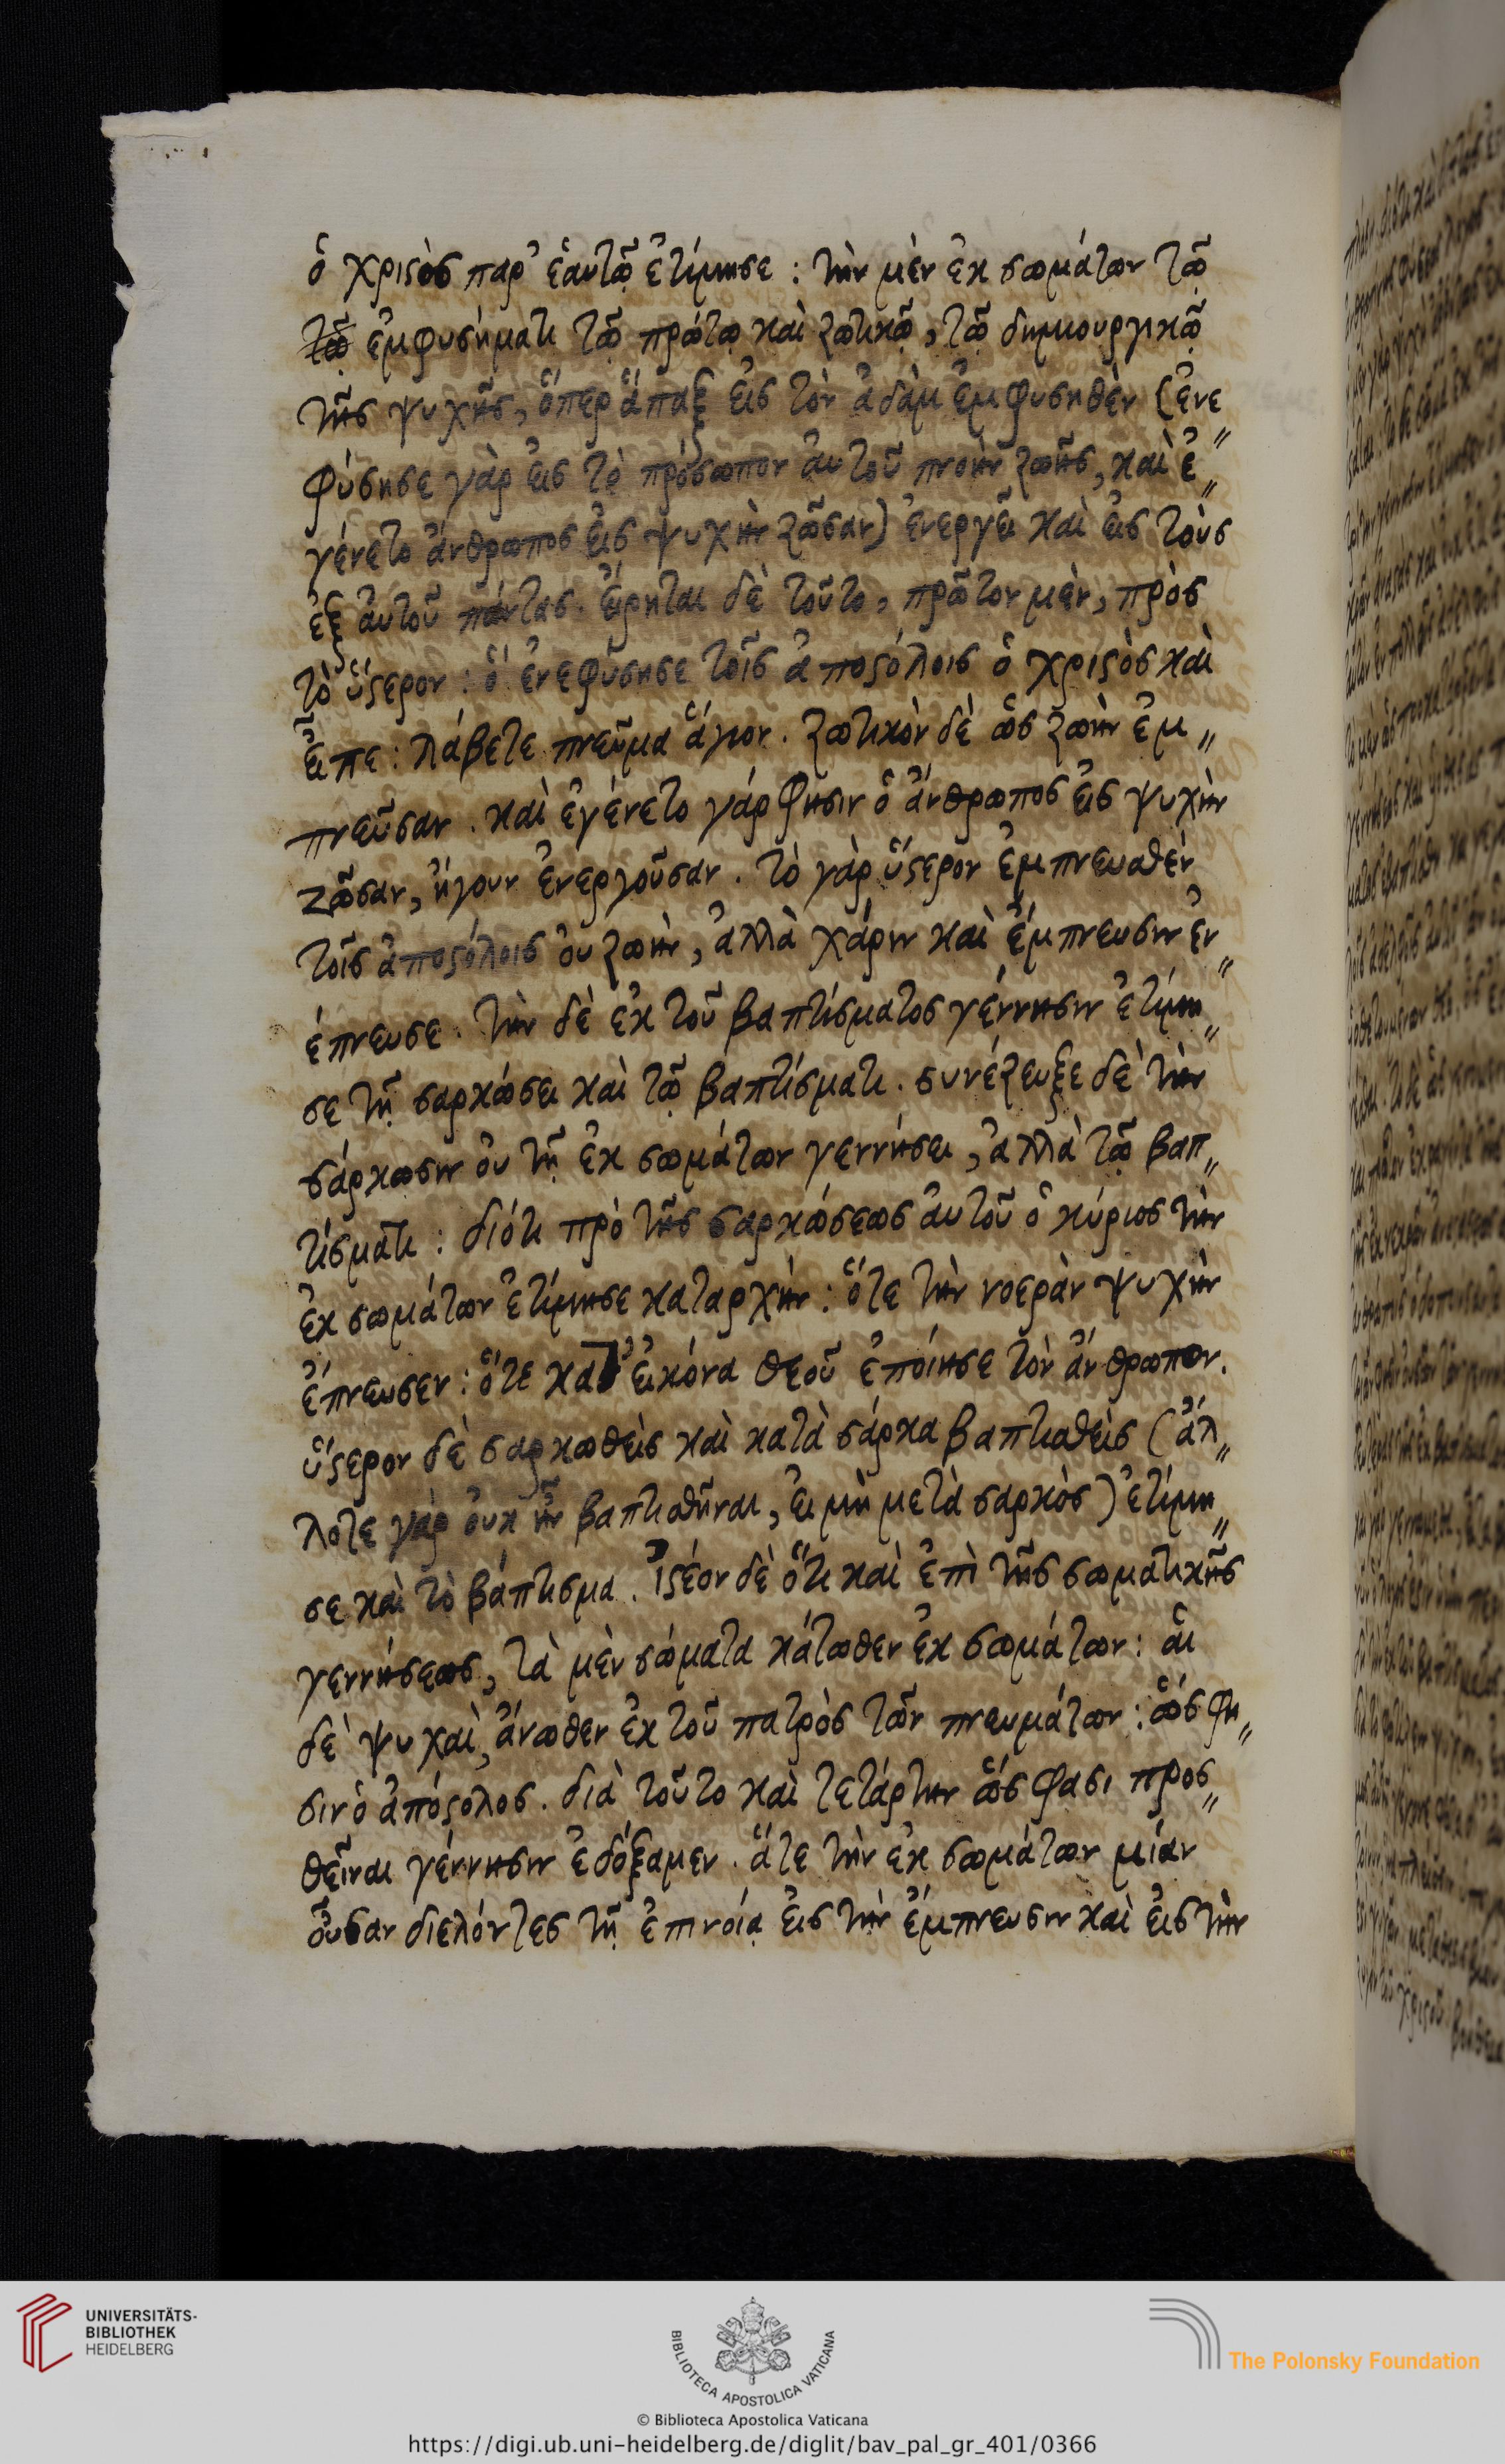 ὁ χριστὸς παρ' ἑαυτῶ ἐτίμησε : τὴν μὲν ἐκ σωμάτων τῶ
τῶ ἐμφυσήματι τῶ πρώτω καὶ ζωτικῶ, τῶ δημιουργικῶ
τῆς ψυχῆς, ὅπερ ἅπαξ εἰς τὸν ἀδὰμ ἐμφυσηθὲν (ἐνε〃
φύσησε γὰρ εἰς τὸ πρόσωπον αὐτοῦ πνοὴν ζωῆς, καὶ ἐ〃
γένετο ἄνθρωπος εἰς ψυχὴν ζῶσαν) ἐνεργεῖ καὶ εἰς τοὺς
ἐξ αὐτοῦ πάντας. εἴρηται δὲ τοῦτο, πρῶτον μὲν, πρὸς
τὸ ὕστερον : ὃ ἐνεφύσησε τοῖς ἀποστόλοις ὁ χριστὸς καὶ
εἶπε : λάβετε πνεῦμα ἅγιον. ζωτικὸν δὲ ὡς ζωὴν ἐμ〃
πνεῦσαν. καὶ ἐγένετο γάρ φησιν ὁ ἄνθρωπος εἰς ψυχὴν
ζῶσαν, ἤγουν ἐνεργοῦσαν. τὸ γὰρ ὕστερον ἐμπνευσθὲν
τοῖς ἀποστόλοις οὐ ζωὴν, ἀλλὰ χάριν καὶ ἔμπνευσιν ἐν〃
έπνευσε. τὴν δὲ ἐκ τοῦ βαπτίσματος γέννησιν ἐτίμη〃
σε τῆ σαρκώσει καὶ τῶ βαπτίσματι. συνέζευξε δὲ τὴν
σάρκωσιν οὐ τῆ ἐκ σωμάτων γεννήσει, ἀλλὰ τῶ βαπ〃
τίσματι : διότι πρὸ τῆς σαρκώσεως αὐτοῦ ὁ κύριος τὴν
ἐκ σωμάτων ἐτίμησε καταρχὴν : ὅτε τὴν νοερὰν ψυχὴν
ἔπνευσεν : ὅτε κατ' εἰκόνα θεοῦ ἐποίησε τὸν ἄνθρωπον.
ὕστερον δὲ σαρκωθεὶς καὶ κατὰ σάρκα βαπτισθεὶς (ἄλ〃
λοτε γὰρ οὐκ ἦν βαπτισθῆναι, εἰ μὴ μετὰ σαρκὸς) ἐτίμη〃
σε καὶ τὸ βάπτισμα. Ἰστέον δὲ ὅτι καὶ ἐπὶ τῆς σωματικῆς
γεννήσεως, τὰ μὲν σώματα κάτωθεν ἐκ σωμάτων : αἱ
δὲ ψυχαὶ, ἄνωθεν ἐκ τοῦ πατρὸς τῶν πνευμάτων : ὥς φη〃
σιν ὁ ἀπόστολος. διὰ τοῦτο καὶ τετάρτην ὥς φασι προσ〃
θεῖναι γέννησιν ἐδόξαμεν. ἅτε τὴν ἐκ σωμάτων μίαν
οὖσαν διελόντες τῆ ἐπινοία εἰς τὴν ἔμπνευσιν καὶ εἰς τὴν
UNIVERSITÄTS-
BIBLIOTHEK
HEIDELBERG
BIBLIOTECA APOSTOLICA VATICANA
The Polonsky Foundation
© Biblioteca Apostolica Vaticana
https://digi.ub.uni-heidelberg.de/diglit/bav_pal_gr_401/0366